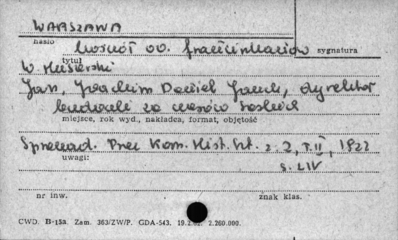 WARSZAWA
hasło
Kościół OO. Franciszkanów sygnatura
tytuł
W. Kusierski
Jan, Joachim Daniel Jauch, dyrektor
budowli za czasów saskich
miejsce, rok wyd., nakładca, format, objętość
Sprawozd. Prac Kom. Hist. Szt. z. 2, T. II, 1922
uwagi:
s. LIV
nr inw. znak klas.
CWD. B-15a. Zam. 363/ZW/P. GDA-543. 2.260.000.